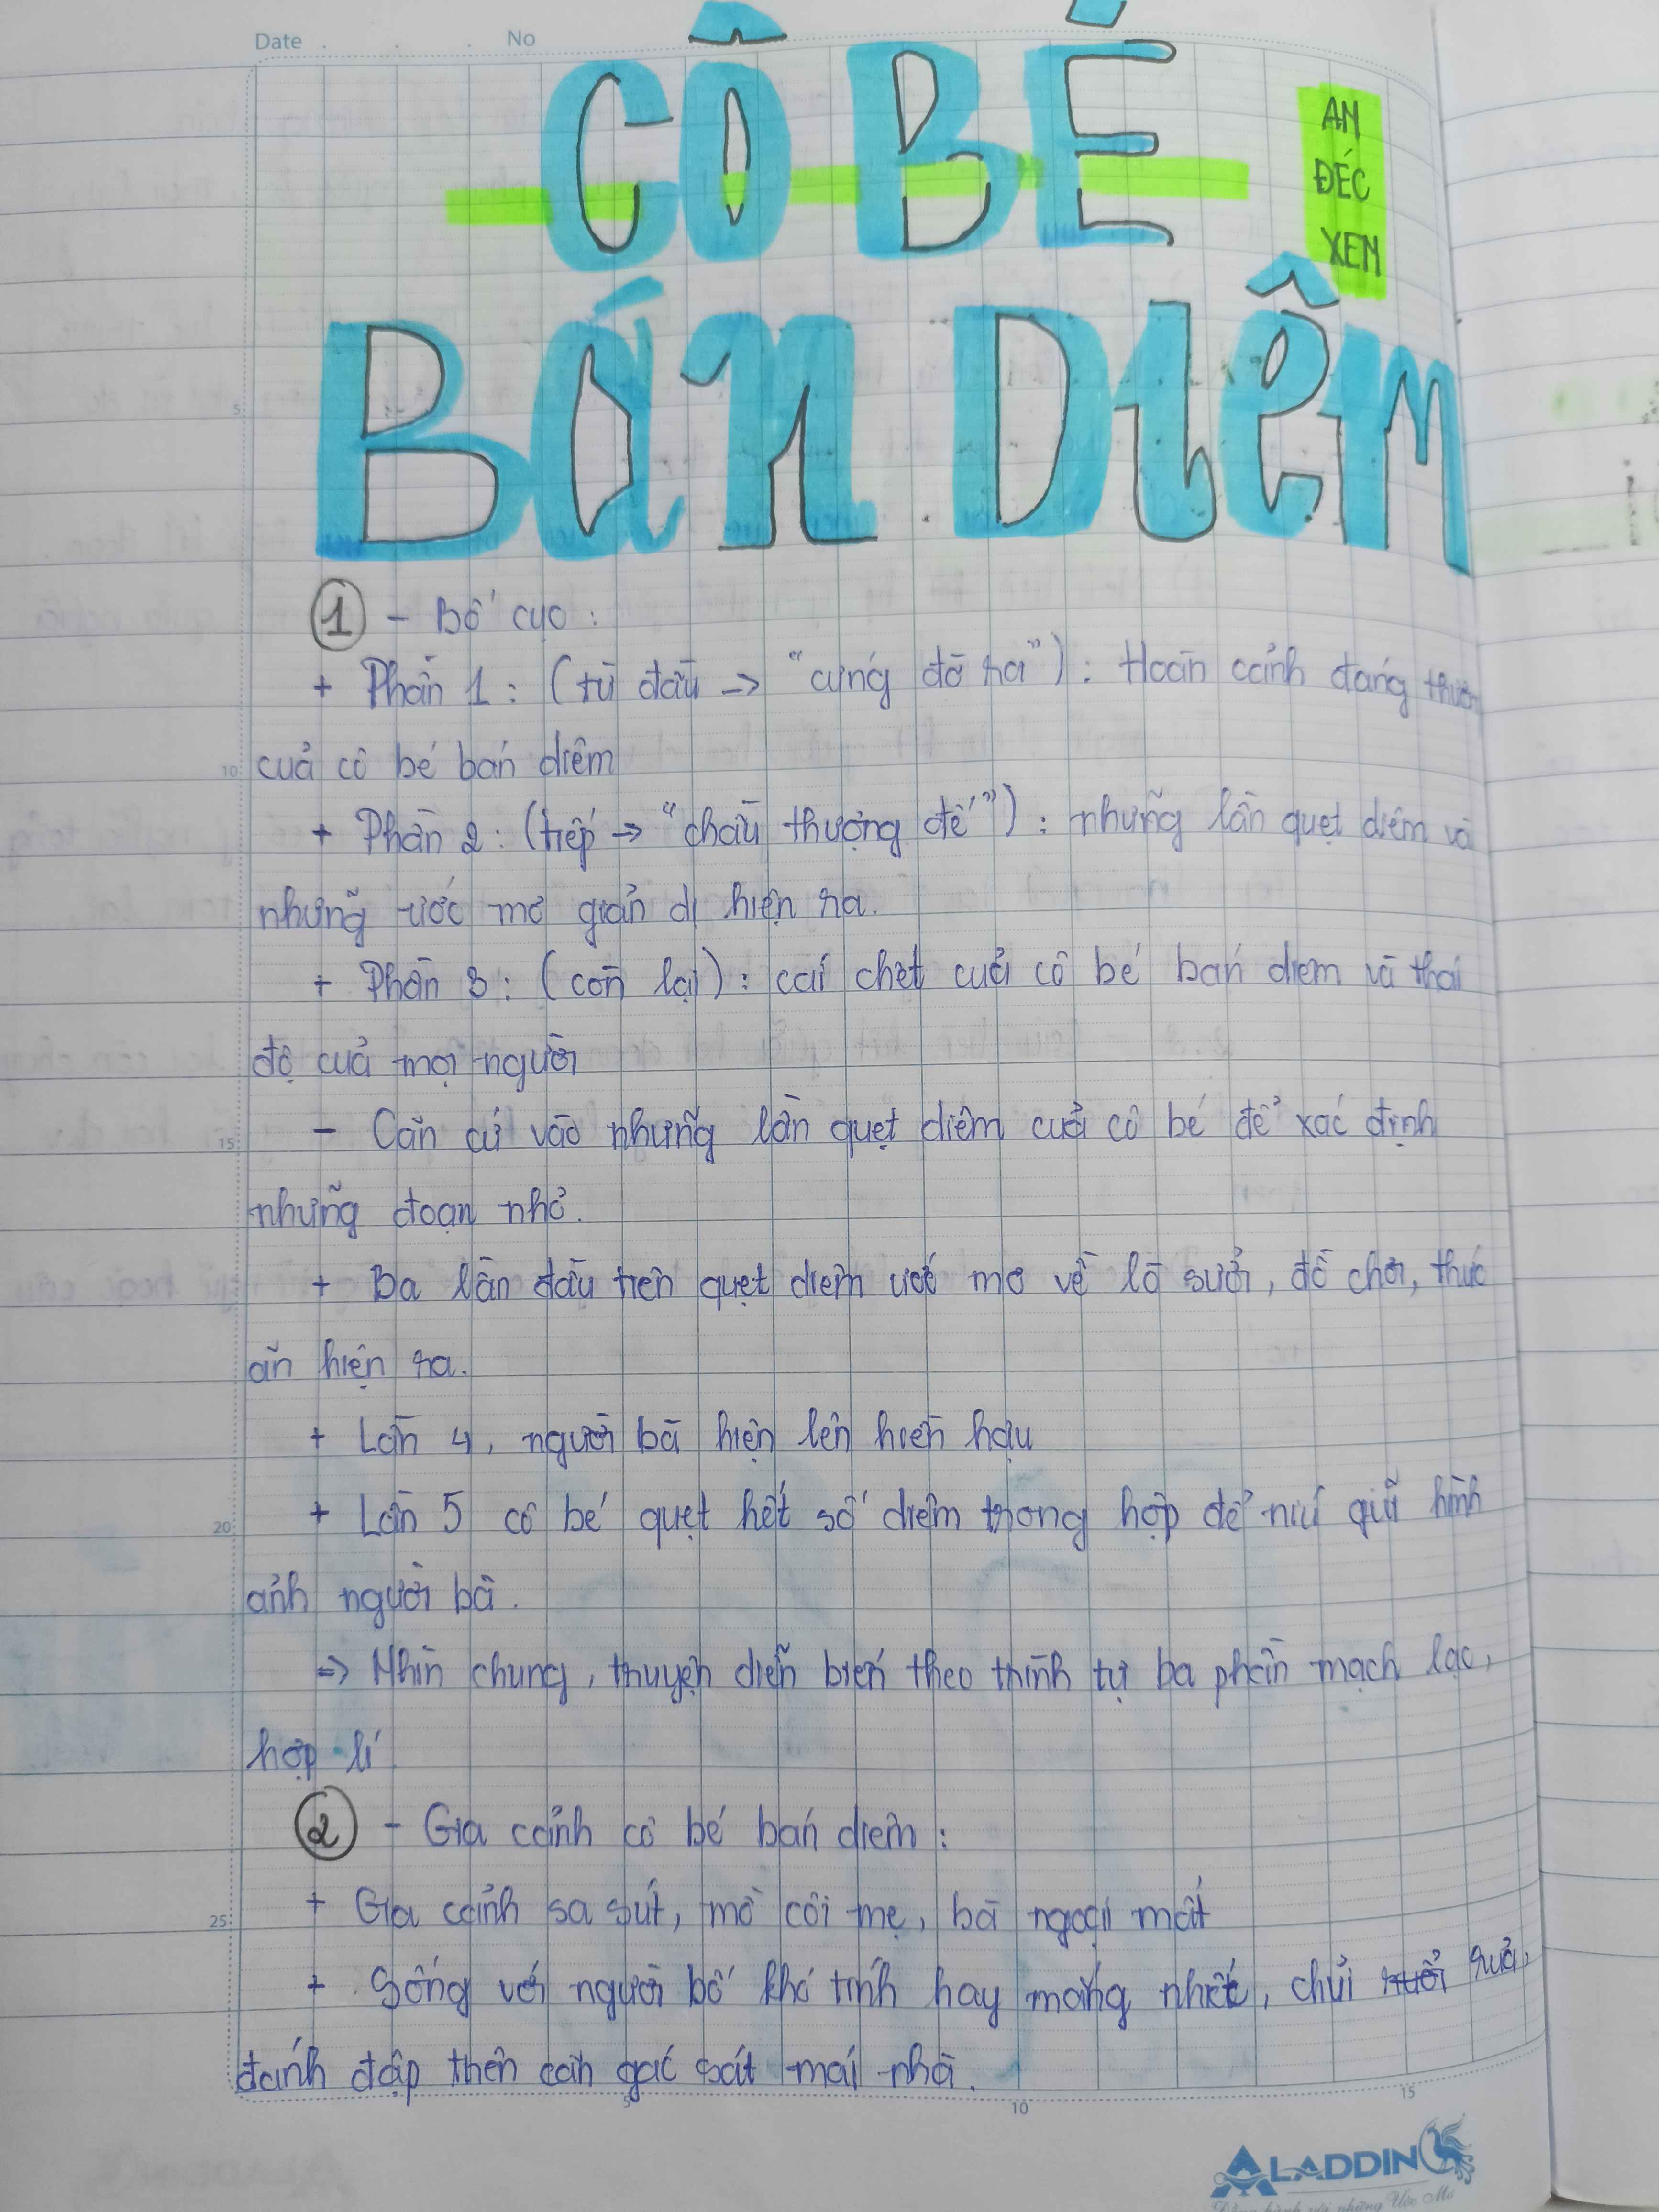 Date . . . No
CÔ BÉ
AN
ĐÉC
XEN
BÁN DIÊM
1 - Bố cục :
+ Phần 1 : (từ đầu -> "cứng đờ ra") : Hoàn cảnh đáng thươn
của cô bé bán diêm
+ Phần 2 : (tiếp -> "chầu thượng đế") : những lần quẹt diêm và
những ước mơ giản dị hiện ra.
+ Phần 3 : (còn lại) : cái chết của cô bé bán diêm và thái
độ của mọi người
- Căn cứ vào những lần quẹt diêm của cô bé để xác định
những đoạn nhỏ.
+ Ba lần đầu tiên quẹt diêm ước mơ về lò sưởi, đồ chơi, thức
ăn hiện ra.
+ Lần 4, người bà hiện lên hiền hậu
+ Lần 5 cô bé quẹt hết số diêm trong hộp để níu giữ hình
ảnh người bà.
=> Nhìn chung, truyện diễn biến theo trình tự ba phần mạch lạc,
hợp lí
2 - Gia cảnh cô bé bán diêm :
+ Gia cảnh sa sút, mồ côi mẹ, bà ngoại mất
+ Sống với người bố khó tính hay mắng nhiếc, chửi rủa,
đánh đập trên căn gác sát mái nhà.
5
10
15
20
25
5
10
15
ALADDIN
Đồng hành với những Ước Mơ